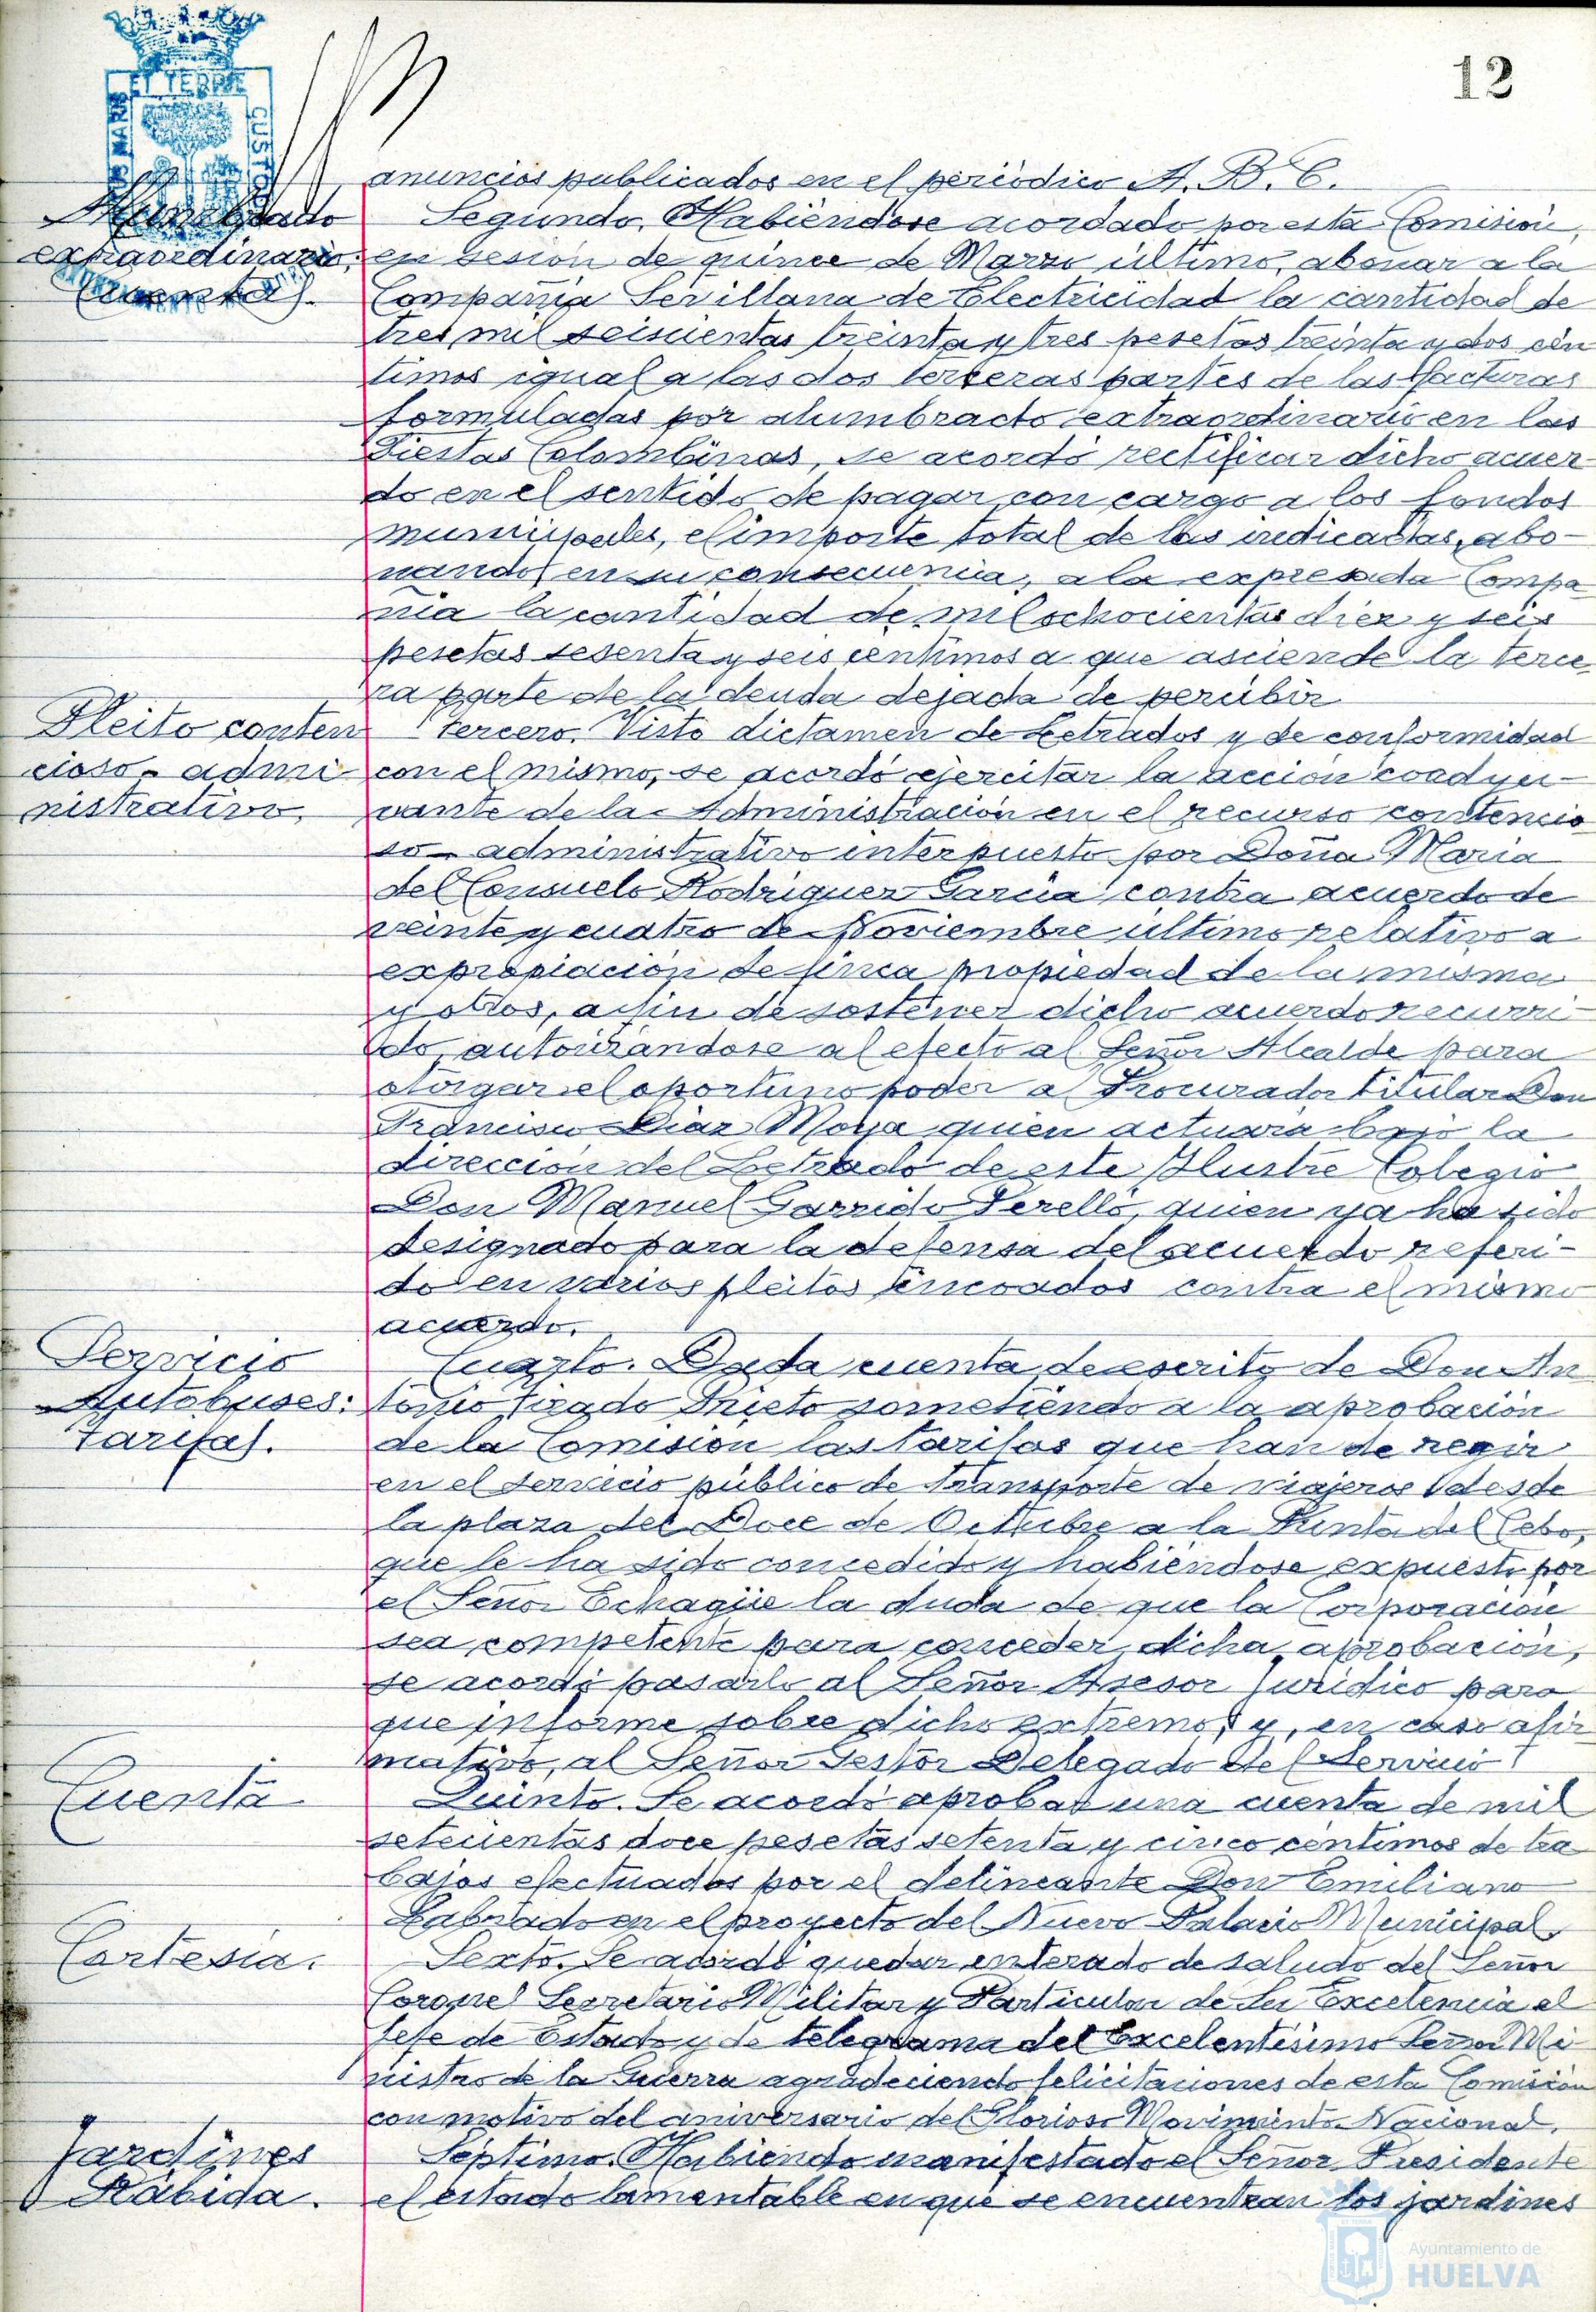 12
ET TERRE
CUSTO
MARIS
anuncios publicados en el periódico A. B. C.
Alumbrado
extraordinario:
Cuentas.
Segundo. Habiéndose acordado por esta Comisión,
en sesión de quince de Marzo último, abonar a la
Compañia Sevillana de Electricidad la cantidad de
tres mil seiscientas treinta y tres pesetas treinta y dos cén
timos igual a las dos terceras partes de las facturas
formuladas por alumbrado extraordinario en las
Fiestas Colombinas, se acordó rectificar dicho acuer-
do en el sentido de pagar con cargo a los fondos
municipales, el importe total de las indicadas, abo-
nando, en su consecuencia, a la expresada Compa
ñia la cantidad de mil ochocientas diez y seis
pesetas sesenta y seis céntimos a que asciende la terce
ra parte de la deuda dejada de percibir
Pleito conten
cioso-admi
nistrativo.
Tercero. Visto dictamen de Letrados y de conformidad
con el mismo, se acordó ejercitar la acción coadyu-
vante de la Administración en el recurso contencio
so-administrativo interpuesto por Doña Maria
del Consuelo Rodriguez Garcia contra acuerdo de
veinte y cuatro de Noviembre último relativo a
expropiación de finca propiedad de la misma
y otros, a fin de sostener dicho acuerdo recurri-
do, autorizándose al efecto al Señor Alcalde para
otorgar el oportuno poder a Procurador titular Don
Francisco Diaz Moya quien actuará bajo la
dirección del Letrado de este Ilustre Colegio
Don Manuel Garrido Perelló, quien ya ha sido
designado para la defensa del acuerdo referi-
do en varios pleitos incoados contra el mismo
acuerdo.
Servicio
Autobuses:
tarifas.
Cuarto. Dada cuenta de escrito de Don An
tonio Tirado Prieto sometiendo a la aprobación
de la Comisión las tarifas que han de regir
en el servicio público de transporte de viajeros desde
la plaza del Doce de Octubre a la Punta del Sebo,
que le ha sido concedido y habiéndose expuesto por
el Señor Echagüe la duda de que la Corporación
sea competente para conceder dicha aprobación,
se acordó pasarlo al Señor Asesor Juridico para
que informe sobre dicho extremo, y, en caso afir
mativo, al Señor Gestor Delegado del Servicio
Cuenta
Quinto. Se acordó aprobar una cuenta de mil
setecientas doce pesetas setenta y cinco céntimos de tra
bajos efectuados por el delineante Don Emiliano
Labrado en el proyecto del Nuevo Palacio Municipal.
Cortesia.
Sexto. Se acordó quedar enterado de saludo del Señor
Coronel Secretario Militar y Particular de Su Excelencia el
Jefe de Estado y de telegrama del Excelentísimo Señor Mi
nistro de la Guerra agradeciendo felicitaciones de esta Comisión
con motivo del aniversario del Glorioso Movimiento Nacional.
Jardines
Rábida.
Séptimo. Habiendo manifestado el Señor Presidente
el estado lamentable en que se encuentran los jardines
Ayuntamiento de
HUELVA